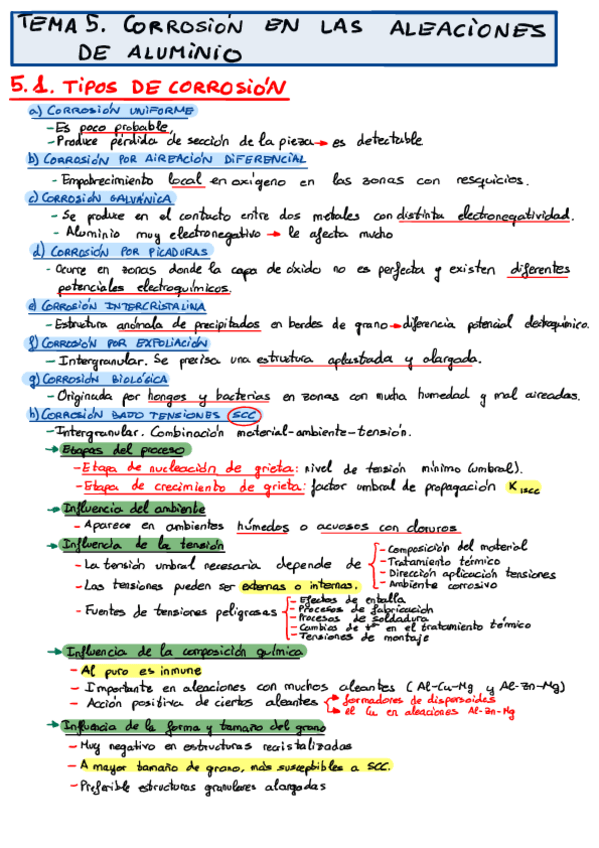 TEMA 5. CORROSIÓN EN LAS ALEACIONES
DE ALUMINIO
5.1. TIPOS DE CORROSIÓN
a) CORROSIÓN UNIFORME
- Es poco probable,
- Produce pérdida de sección de la pieza → es detectable
b) CORROSIÓN POR AIREACIÓN DIFERENCIAL
- Empobrecimiento local en oxígeno en las zonas con resquicios.
c) CORROSIÓN GALVÁNICA
- Se produce en el contacto entre dos metales con distinta electronegatividad.
- Aluminio muy electronegativo → le afecta mucho
d) CORROSIÓN POR PICADURAS
- Ocurre en zonas donde la capa de óxido no es perfecta y existen diferentes
potenciales electroquímicos.
e) CORROSIÓN INTERCRISTALINA
- Estructura anómala de precipitados en bordes de grano → diferencia potencial electroquímico.
f) CORROSIÓN POR EXFOLIACIÓN
- Intergranular. Se precisa una estructura aplastada y alargada.
g) CORROSIÓN BIOLÓGICA
- Originada por hongos y bacterias en zonas con mucha humedad y mal aireadas.
h) CORROSIÓN BAJO TENSIONES SCC
- Intergranular. Combinación material-ambiente-tensión.
→ Etapas del proceso
- Etapa de nucleación de grieta: nivel de tensión mínimo (umbral).
- Etapa de crecimiento de grieta: factor umbral de propagación K1SCC
→ Influencia del ambiente
- Aparece en ambientes húmedos o acuosos con cloruros
→ Influencia de la tensión
- La tensión umbral necesaria depende de
- Composición del material
- Tratamiento térmico
- Dirección aplicación tensiones
- Ambiente corrosivo
- Las tensiones pueden ser externas o internas.
- Fuentes de tensiones peligrosas
- Efectos de entalla
- Procesos de fabricación
- Procesos de soldadura
- Cambios de tª en el tratamiento térmico
- Tensiones de montaje
→ Influencia de la composición química
- Al puro es inmune
- Importante en aleaciones con muchos aleantes (Al-Cu-Mg y Al-Zn-Mg)
- Acción positiva de ciertos aleantes
formadores de dispersoides
el Cu en aleaciones Al-Zn-Mg
→ Influencia de la forma y tamaño del grano
- Muy negativo en estructuras recristalizadas
- A mayor tamaño de grano, más susceptibles a SCC.
- Preferible estructuras granulares alargadas